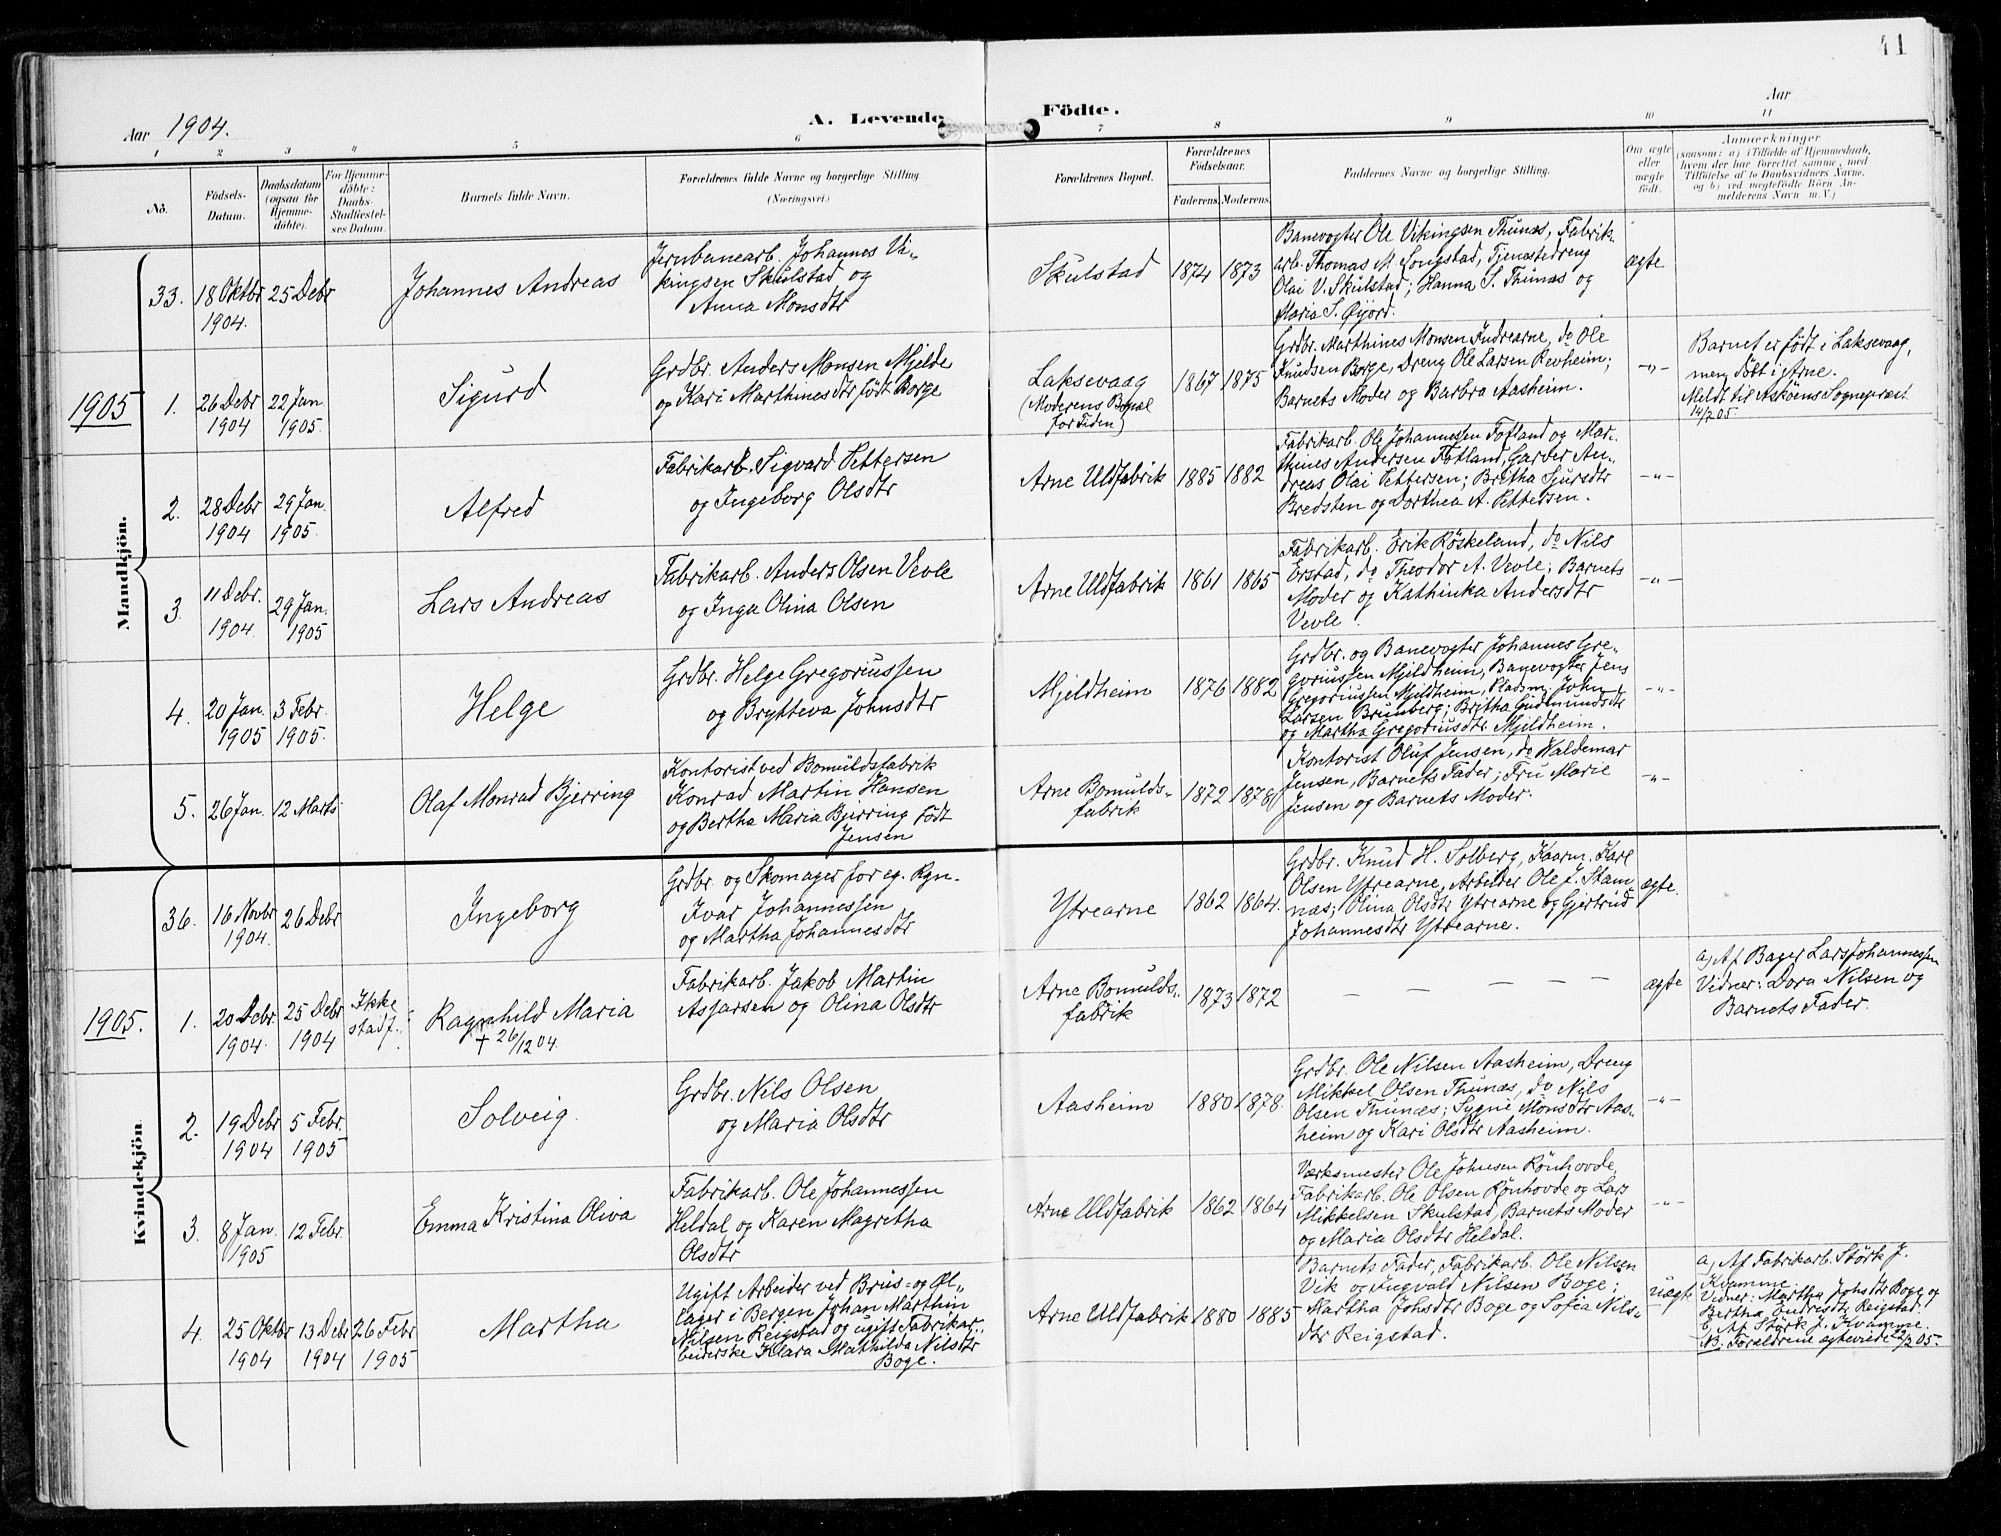 41
Aar 1904.
A. Levende
Födte.
Aar
1 2 3 4 5 6 7 8 9 10 11
No.
Födsels-
Datum.
Daabsdatum
(ogsaa for
Hjemme-
döbte).
For Hjemme-
döbte:
Daabs-
Stadfæstel-
ses Datum.
Barnets fulde Navn.
Forældrenes fulde Navne og borgerlige Stilling.
(Næringsvei.)
Forældrenes Bopæl.
Forældrenes
Födselsaar.
Faderens. Moderens.
Faddernes Navne og borgerlige Stilling.
Om ægte
eller
uægte
födt.
Anmærkninger
(saasom: a) i Tilfælde af Hjemmedaab,
hvem der har forrettet samme, med
Tilföielse af to Daabsvidners Navne,
og b) ved uægtefödte Börn An-
melderens Navn m. V.)
Mandkjön.
33.
18 Oktbr
1904.
25 Debr
Johannes Andreas
Jernbanearb. Johannes Vi-
kingsen Skulstad og
Anna Monsdtr
Skulstad
1874 1873
Banevogter Ole Vikingsen Thunæs, Fabrik-
arb. Thomas M. Songstad, Tjenestedreng
Olai V. Skulstad; Hanna S. Thunæs og
Maria S. Öyjord.
ægte
1905
1.
26 Debr
1904
22 Jan
1905
Sigurd
Grdbr. Anders Monsen Mjelde
og Kari Marthinesdtr født Borge
Laksevaag
(Moderens Bopæl
for Tiden)
1867 1875
Grdbr. Marthines Monsen Indrearne, do Ole
Knudsen Borge, Dreng Ole Larsen Revheim;
Barnets Moder og Barbra Aasheim.
-"-
Barnet er født i Laksevaag,
men døbt i Arne.
Meldt til Askøens Sognepræst
14/2 05
2.
28 Debr
1904
29 Jan
1905.
Alfred
Fabrikarb. Sigvard Pettersen
og Ingeborg Olsdtr
Arne Uldfabrik
1885 1882
Fabrikarb. Ole Johannessen Fotland og Mar-
thines Andersen Fotland, Garder An-
dreas Olai Pettersen; Britha Sjursdtr
Bredsten og Dorthea A. Pettersen.
-"-
3
11 Debr.
1904.
29 Jan.
1905
Lars Andreas
Fabrikarb. Anders Olsen Vevle
og Inga Olina Olsen
Arne Uldfabrik
1861 1865
Fabrikarb. Erik Röskeland, do Nils
Erstad, do Theodor A. Vevle; Barnets
Moder og Kathinka Andersdtr
Vevle.
-"-
4.
20 Jan.
1905
3 Febr.
1905.
Helge
Grdbr. Helge Gregoriussen
og Brytteva Johnsdtr
Mjeldheim
1876 1882
Grdbr. og Banevogter Johannes Gre-
goriussen Mjeldheim, Banevogter Jens
Gregoriussen Mjeldheim, Pladsm. John
Larsen Brunberg; Britha Gudmundsdtr
og Martha Gregoriusdtr. Mjeldheim.
-"-
5.
26 Jan.
12 Marts
Olaf Monrad Bjerring
Kontorist ved Bomuldsfabrik
Konrad Martin Hansen
og Bertha Maria Bjerring født
Jensen
Arne Bomulds-
fabrik
1872 1878
Kontorist Oluf Jensen, do Valdemar
Jensen, Barnets Fader; Fru Marie
Jensen og Barnets Moder.
-"-
Kvindekjön.
36.
16 Novbr
1904.
26 Debr
Ingeborg
Grdbr. og Skomager for eg. Rgn.
Ivar Johannessen
og Martha Johannesdtr
Ytrearne
1862 1864.
Grdbr. Knud H. Solberg, Kaarm. Karl
Olsen Ytrearne, Arbeider Ole J. Stam-
næs; Olina Olsdtr Ytrearne og Gjertrud
Johannesdtr Ytrearne.
ægte.
1905.
1.
20 Debr.
1904.
25 Debr
1904
Ikke
stadf.
Ragnhild Maria
† 26/12 04.
Fabrikarb. Jakob Martin
Asjarsen og Olina Olsdtr
Arne Bomulds-
fabrik
1873 1872
— — — — —
ægte
a, Af Bager Lars Johannessen
Vidner: Dora Nilsen og
Barnets Fader.
2.
19 Debr
1904
5 Febr.
1905
Solveig.
Grdbr. Nils Olsen
og Maria Olsdtr
Aasheim
1880 1878.
Grdbr. Ole Nilsen Aasheim, Dreng
Mikkel Olsen Thunæs, do Nils
Olsen Thunæs; Sygne Monsdtr Aas-
heim og Kari Olsdtr Aasheim.
-"-
3.
8 Jan.
1905
12 Febr.
Emma Kristina Oliva
Fabrikarb. Ole Johannessen
Heldal og Karen Magretha
Olsdtr
Arne Uldfabrik
1862 1864
Værksmester Ole Johnsen Rönhovde,
Fabrikarb. Ole Olsen Rönhovde og Lars
Mikkelsen Skulstad, Barnets Moder
og Maria Olsdtr Heldal.
-"-
4.
25 Oktbr
1904
13 Debr
1904
26 Febr
1905
Martha
Ugift Arbeider ved Brus- og Øl-
lager i Bergen Johan Marthin
Nilsen Reigstad og ugift Fabrikar-
beiderske Klara Mathilda Nilsdtr
Boge.
Arne Uldfabrik
1880 1885
Barnets Fader, Fabrikarb. Ole Nilsen
Vik og Ingvald Nilsen Boge;
Martha Johsdtr Boge og Sofia Nils-
dtr Reigstad.
uægte
a, Af Fabrikarb. Størk J.
Kvamme.
Vidner: Martha Johsdtr Boge og
Bertha Endresdtr Reigstad.
b, Af Størk J. Kvamme.
NB. Forældrene ægteviede 26/2 05.